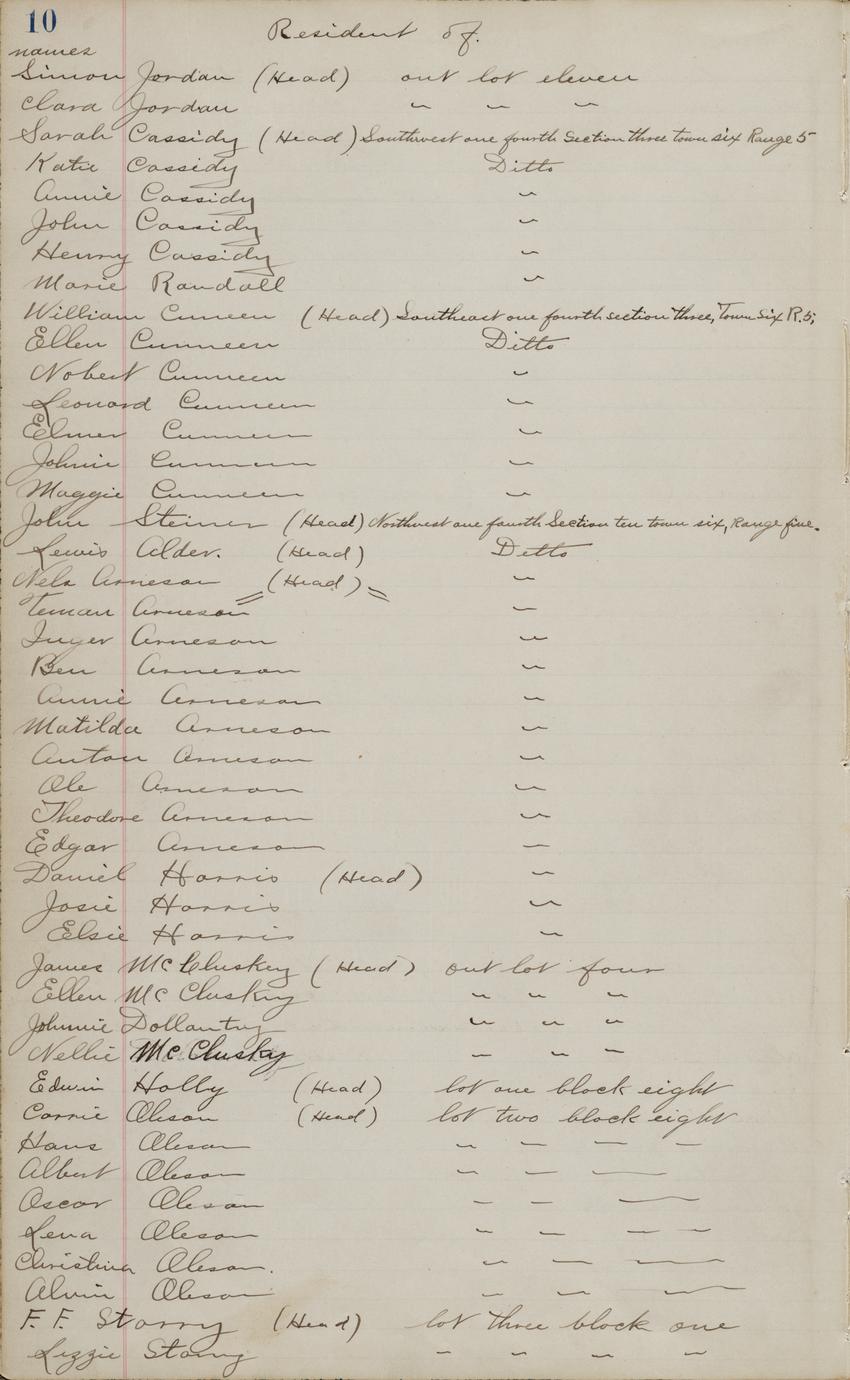 10
Resident of.
names
Simon Jordan (Head) out lot eleven
Clara Jordan " " "
Sarah Cassidy (Head) Southwest one fourth Section three town six Range 5
Katie Cassidy Ditto
Annie Cassidy "
John Cassidy "
Henry Cassidy "
Marie Randall "
William Cunneen (Head) Southeast one fourth section three, Town six R. 5,
Ellen Cunneen Ditto
Nobert Cunneen "
Leonard Cunneen "
Elmer Cunneen "
Johnie Cunneen "
Maggie Cunneen "
John Steiner (Head) Northwest one fourth Section ten town six, Range five.
Lewis Alder. (Head) Ditto
Nels Arneson (Head) "
Teman Arneson "
Inger Arneson "
Ben Arneson "
Annie Arneson "
Matilda Arneson "
Anton Arneson "
Ole Arneson "
Theodore Arneson "
Edgar Arneson "
Daniel Harris (Head) "
Josie Harris "
Elsie Harris "
James McCluskey (Head) out lot four
Ellen McCluskey " " "
Johnnie " " "
Nellie McClusky " " "
Edwin Holly (Head) lot one block eight
Carrie Oleson (Head) lot two block eight
Hans Oleson " " " "
Albert Oleson " " "
Oscar Oleson " "
Lena Oleson " " " "
Christina Oleson. " " "
Alvin Oleson " " "
F. F. Storry (Head) lot three block one
Lizzie Storry " " " "